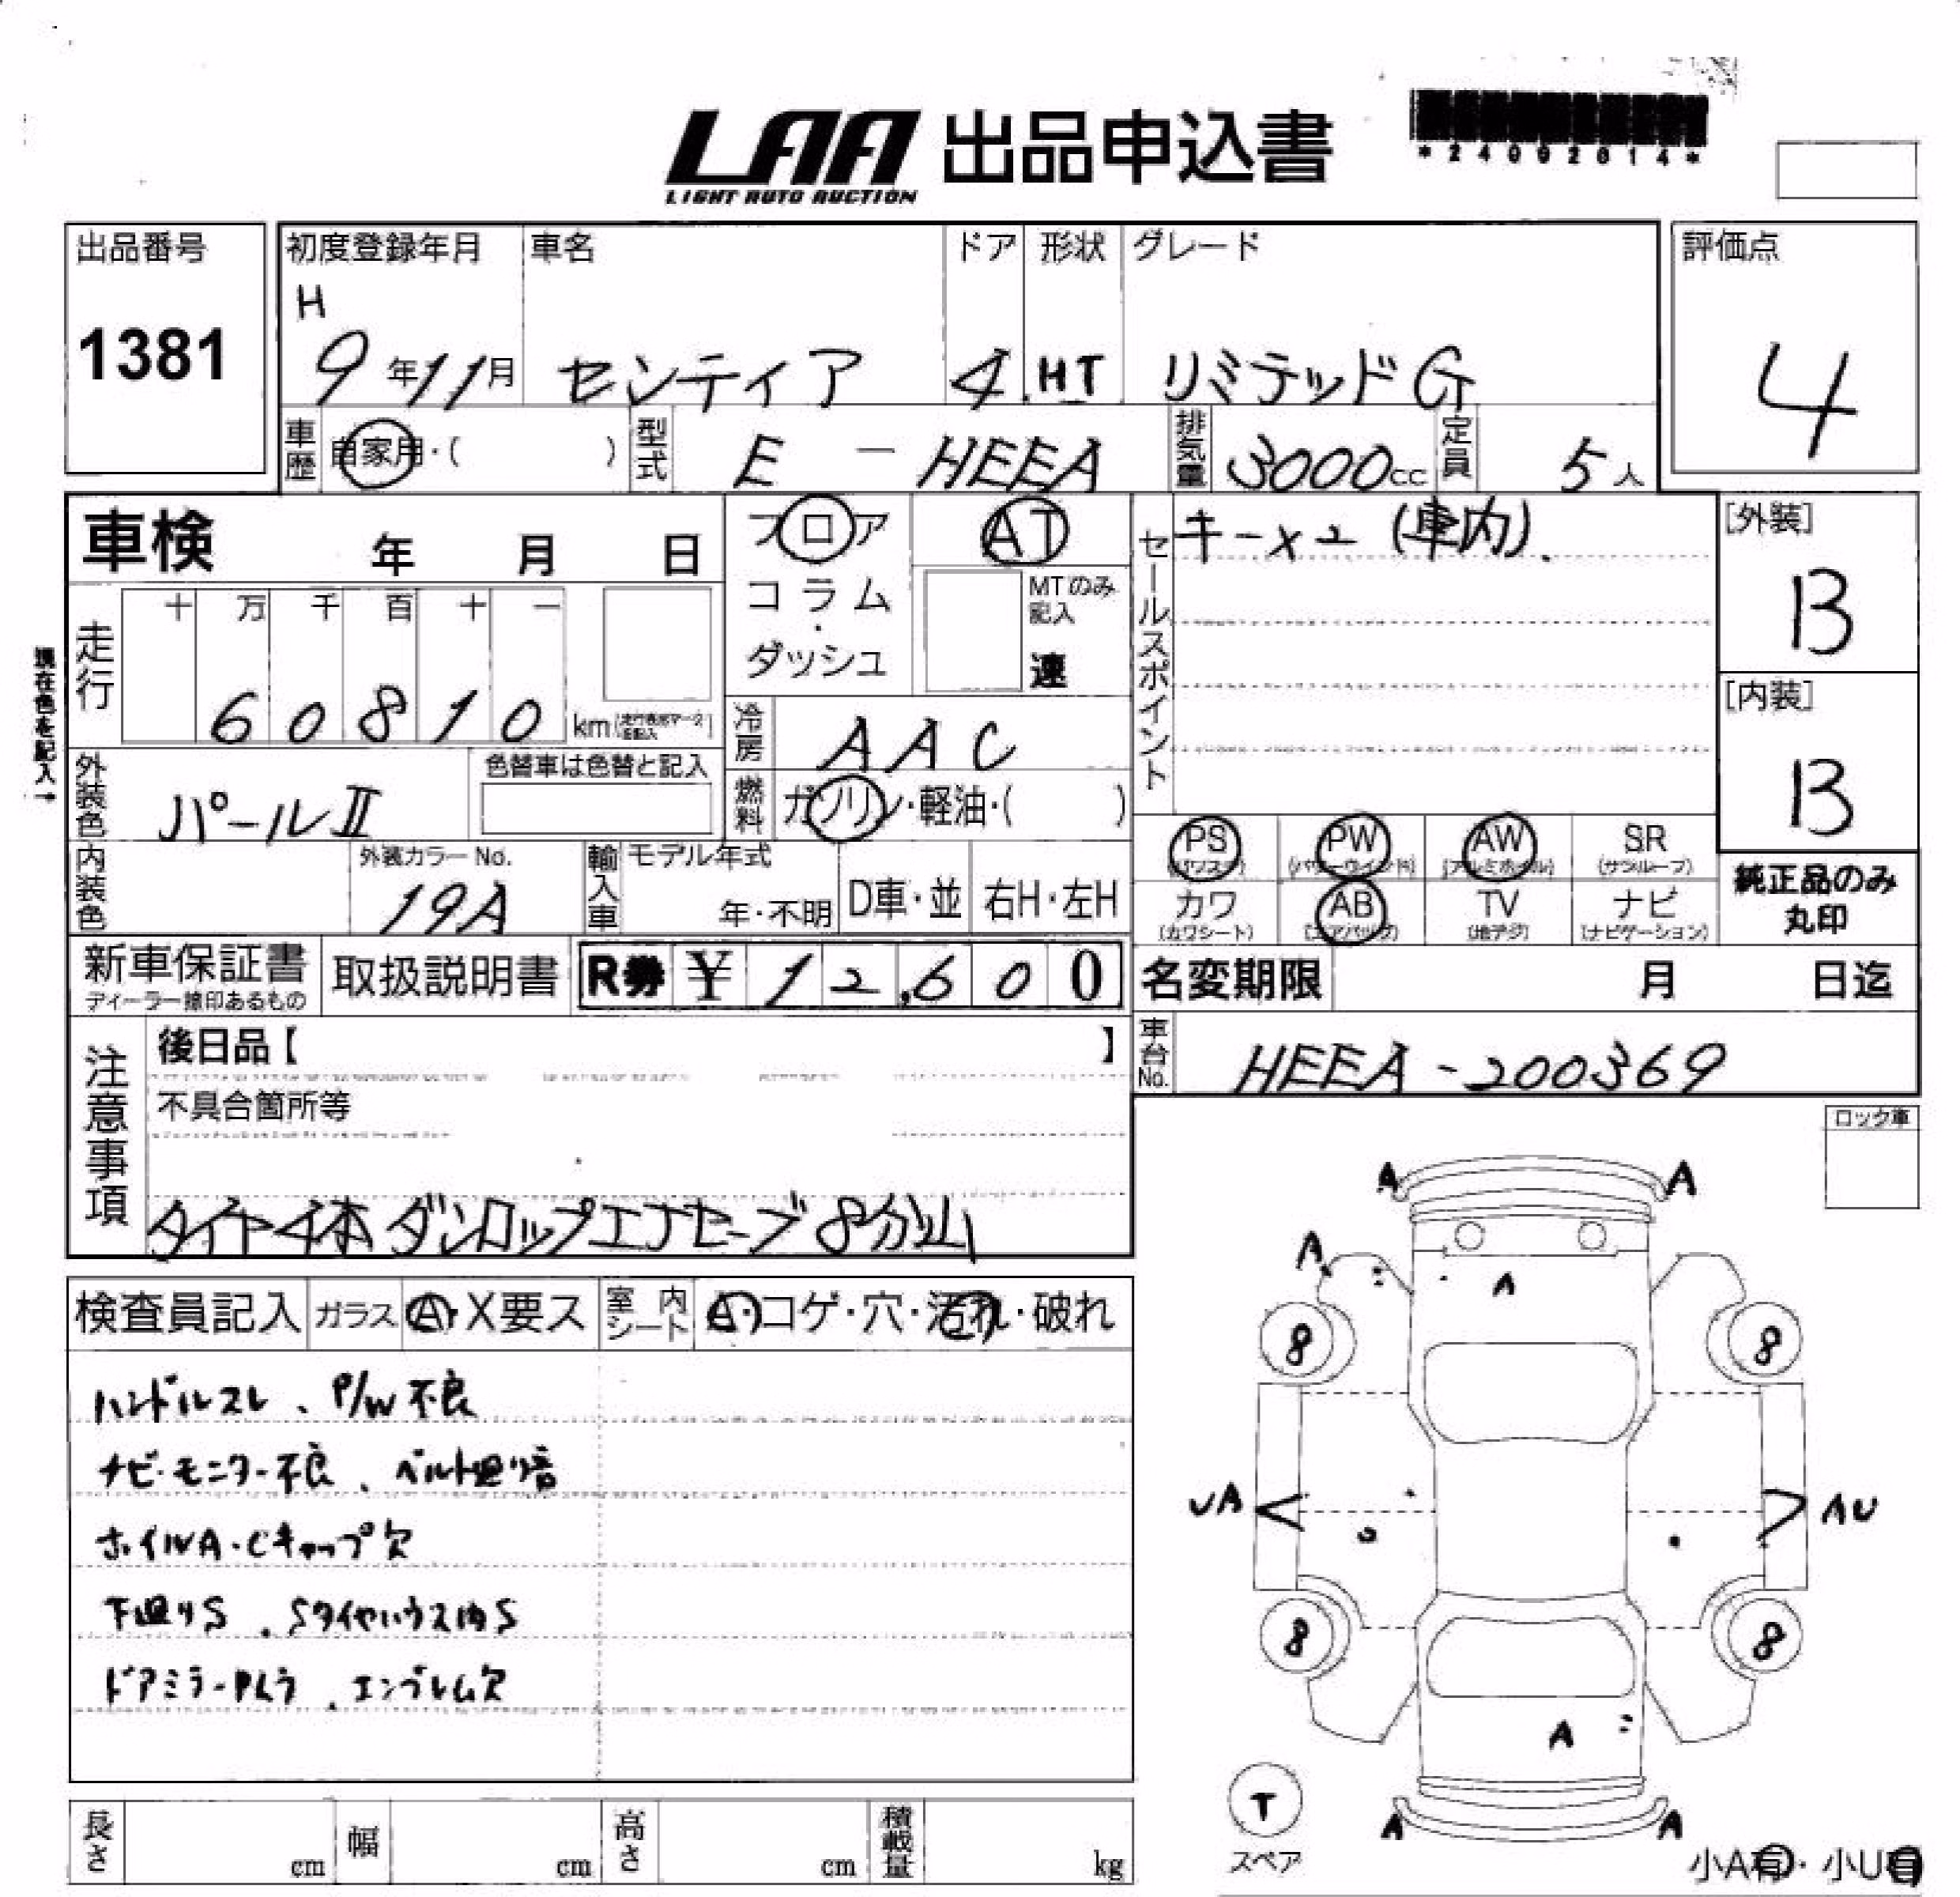 LAA 出品申込書
LIGHT AUTO AUCTION
*24092614*
出品番号 初度登録年月 車名 ドア 形状 グレード 評価点
H
1381 9年11月 センティア 4 HT リミテッドG 4
車歴 自家用・( ) 型式 E - HEEA 排気量 3000cc 定員 5人
車検 年 月 日 フロア AT セールスポイント キーx2 (車内). [外装]
B
コラム・ダッシュ MTのみ記入 速
走行 十 万 千 百 十 一
60810 km
[内装]
B
現在色を記入→
冷房 AAC
外装色 パールII 色替車は色替と記入 燃料 ガソリン・軽油・( )
PS (パワステ) PW (パワーウインド) AW (アルミホイル) SR (サンルーフ)
カワ (カワシート) AB (エアバッグ) TV (地デジ) ナビ (ナビゲーション)
純正品のみ丸印
内装色 外装カラーNo. 19A 輸入車 モデル年式 年・不明 D車・並 右H・左H
新車保証書 ディーラー捺印あるもの 取扱説明書 R券 ¥12,600 名変期限 月 日迄
車台No. HEEA-200369
注意事項 後日品【 】
不具合箇所等
タイヤ4本 ダンロップエナセーブ8分山
ロック車
検査員記入 ガラス A・X要ス 室内シート A・コゲ・穴・汚れ・破れ
ハンドルスレ、P/W不良
ナビ・モニター不良、ベルト廻り音
ホイルA・Cキャップ欠
下廻りS、Sタイヤハウス内S
ドアミラー、エンブレム欠
A A
A
A
8 8
UA AU
8 8
A
T
スペア
A A
小A有・小U有
長さ cm 幅 cm 高さ cm 積載量 kg